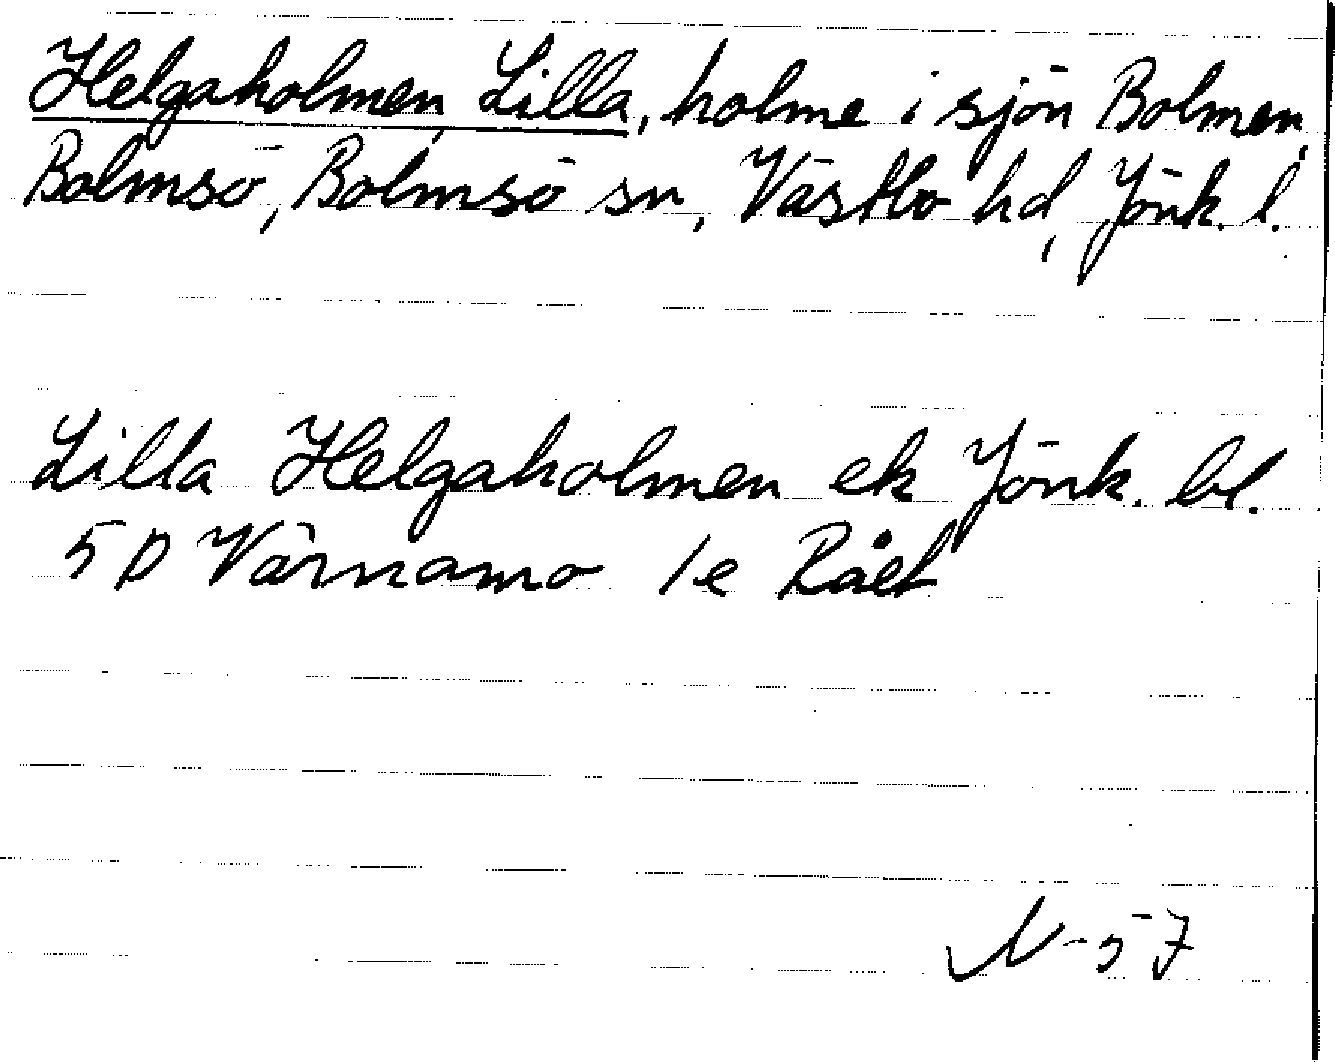 Helgaholmen, Lilla, holme i sjön Bolmen,
Bolmsö, Bolmsö sn, Västbo hd, Jönk. l.
Lilla Helgaholmen ek Jönk. bl.
5D Värnamo 1e Rået
N-57